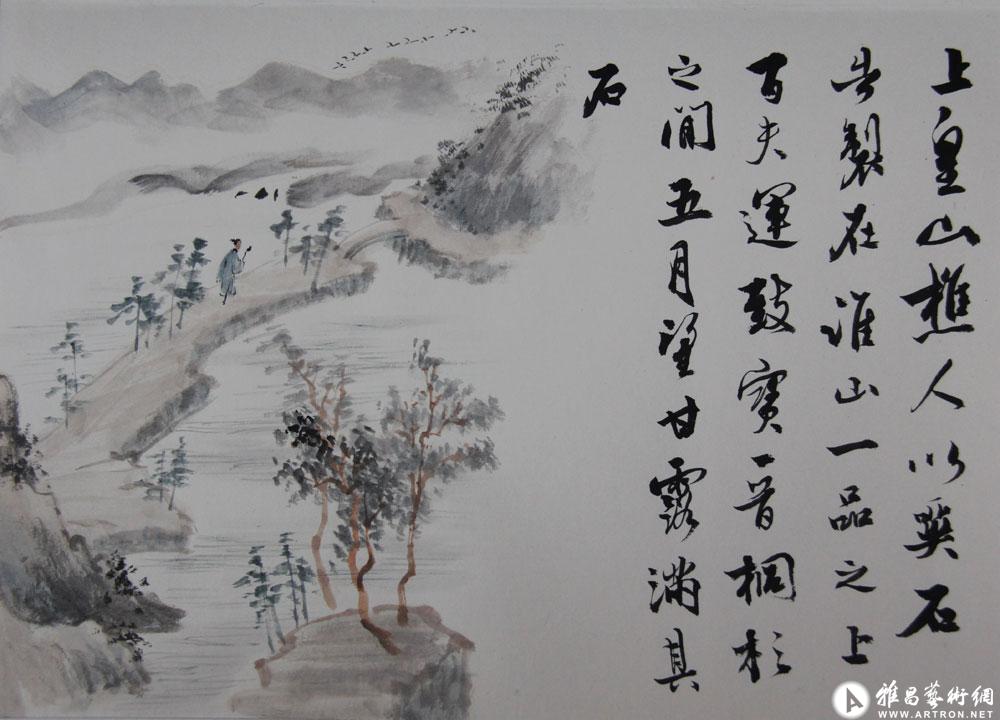 上皇山樵人以異石
告製在淮山一品之上
百夫運鼓寳晉桐杉
之間五月望甘露滿其
石
雅昌藝術網
WWW.ARTRON.NET